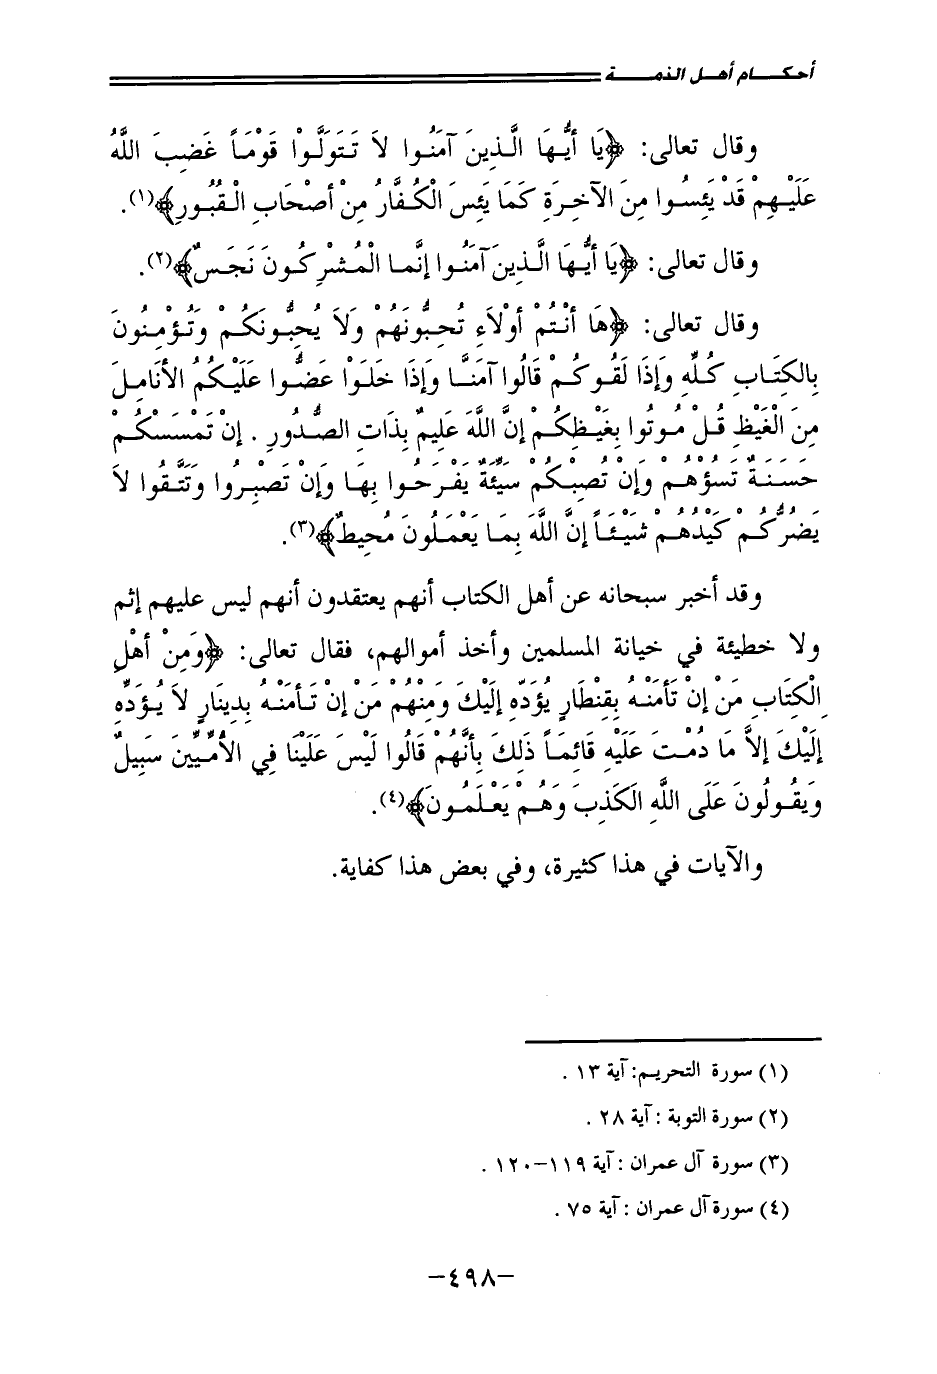 أحكـــــام أهـــل الذمــــــة
وقال تعالى: ﴿يَا أَيُّـهَا الَّـذِينَ آمَنُـوا لاَ تَـتَوَلَّـوْا قَوْمَـاً غَضِبَ اللَّهُ
عَلَيْـهِمْ قَدْ يَئِسُـوا مِنَ الآخِـرَةِ كَمَا يَئِسَ الْكُفَّارُ مِنْ أَصْحَابِ الْـقُبُورِ﴾(١).
وقال تعالى: ﴿يَا أَيُّـهَا الَّـذِينَ آمَنُـوا إِنَّمـا الْمُشْرِكُـونَ نَجَسٌ﴾(٢).
وقال تعالى: ﴿هَا أَنْتُمْ أُوْلاَءِ تُحِبُّونَهُمْ وَلاَ يُحِبُّـونَكُـمْ وَتُـؤْمِنُـونَ
بِالْكِتَـابِ كُـلِّهِ وَإِذَا لَقُـوكُـمْ قَالُوا آمَنَّـا وَإِذَا خَلَـوْا عَضُّـوا عَلَيْكُمُ الأَنَامِـلَ
مِنَ الْغَيْظِ قُـلْ مُـوتُوا بِغَيْـظِكُـمْ إِنَّ اللَّهَ عَلِيمٌ بِذَاتِ الصُّدُورِ . إِنْ تَمْسَسْكُـمْ
حَسَنَـةٌ تَسُؤْهُـمْ وَإِنْ تُصِبْـكُمْ سَيِّئَةٌ يَفْـرَحُـوا بِهَـا وَإِنْ تَصْبِـرُوا وَتَتَّـقُوا لاَ
يَضُرُّكُـمْ كَيْدُهُـمْ شَيْئَـاً إِنَّ اللَّهَ بِمَـا يَعْمَلُـونَ مُحِيطٌ﴾(٣).
وقد أخبر سبحانه عن أهل الكتاب أنهم يعتقدون أنهم ليس عليهم إثم
ولا خطيئة في خيانة المسلمين وأخذ أموالهم، فقال تعالى: ﴿وَمِنْ أَهْلِ
الْكِتَابِ مَنْ إِنْ تَأْمَنْـهُ بِقِنْطَارٍ يُؤَدِّهِ إِلَيْكَ وَمِنْهُمْ مَنْ إِنْ تَـأْمَنْـهُ بِدِينَارٍ لاَ يُـؤَدِّهِ
إِلَيْكَ إِلاَّ مَا دُمْـتَ عَلَيْهِ قَائِمَـاً ذَلِكَ بِأَنَّهُمْ قَالُوا لَيْسَ عَلَيْنَا فِي الأُمِّيِّينَ سَبِيلٌ
وَيَقُـولُونَ عَلَى اللَّهِ الْكَذِبَ وَهُـمْ يَعْـلَمُـونَ﴾(٤).
والآيات في هذا كثيرة، وفي بعض هذا كفاية.
(١) سورة التحريـم: آية ١٣ .
(٢) سورة التوبة : آية ٢٨ .
(٣) سورة آل عمران : آية ١١٩–١٢٠ .
(٤) سورة آل عمران : آية ٧٥ .
–٤٩٨–